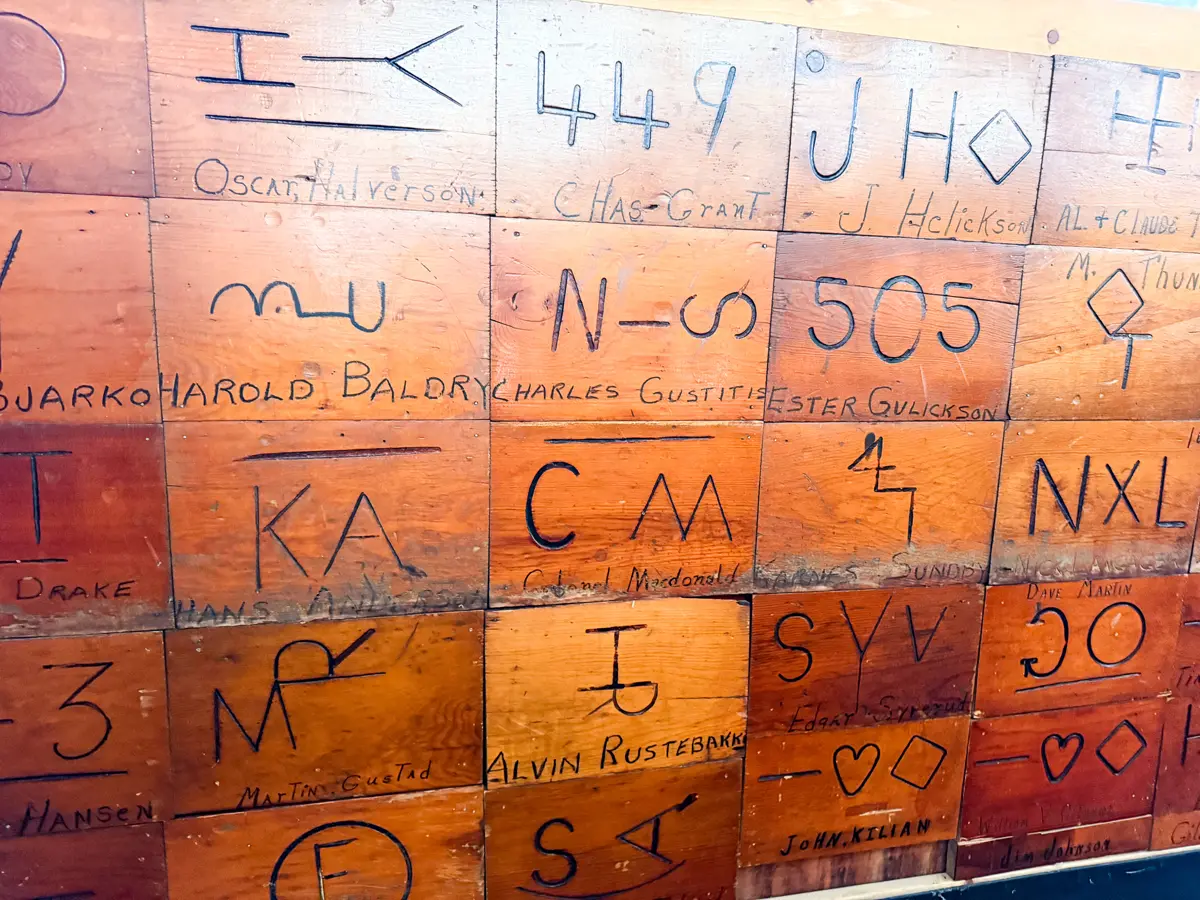 OSCAR HALVERSON
449
CHAS GRANT
JH
J. Hclickson
AL. + CLAUDE
M. THUN
BJARKO
HAROLD BALDRY
N-S
CHARLES GUSTITIS
505
ESTER GULICKSON
DRAKE
KA
HANS ANDERSON
CM
Colonel Macdonald
SUNDBY
NXL
DAVE MARTIN
3
HANSEN
MR
MARTIN GUSTAD
ALVIN RUSTEBAKK
SYV
Edgar Syverud
JO
F
SA
JOHN. KILIAN
William
Jim Johnson